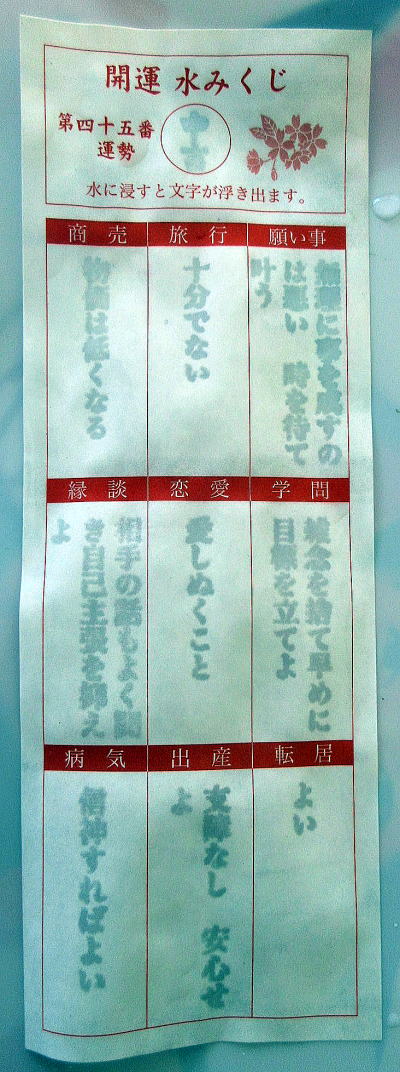 開運 水みくじ
第四十五番
運勢
中吉
水に浸すと文字が浮き出ます。
願い事
無理に事を成すの
は悪い 時を待て
叶う
旅行
十分でない
商売
物価は低くなる
学問
雑念を捨て早めに
目標を立てよ
恋愛
愛しぬくこと
縁談
相手の話もよく聞
き自己主張を抑え
よ
転居
よい
出産
支障なし 安心せ
よ
病気
信神すればよい